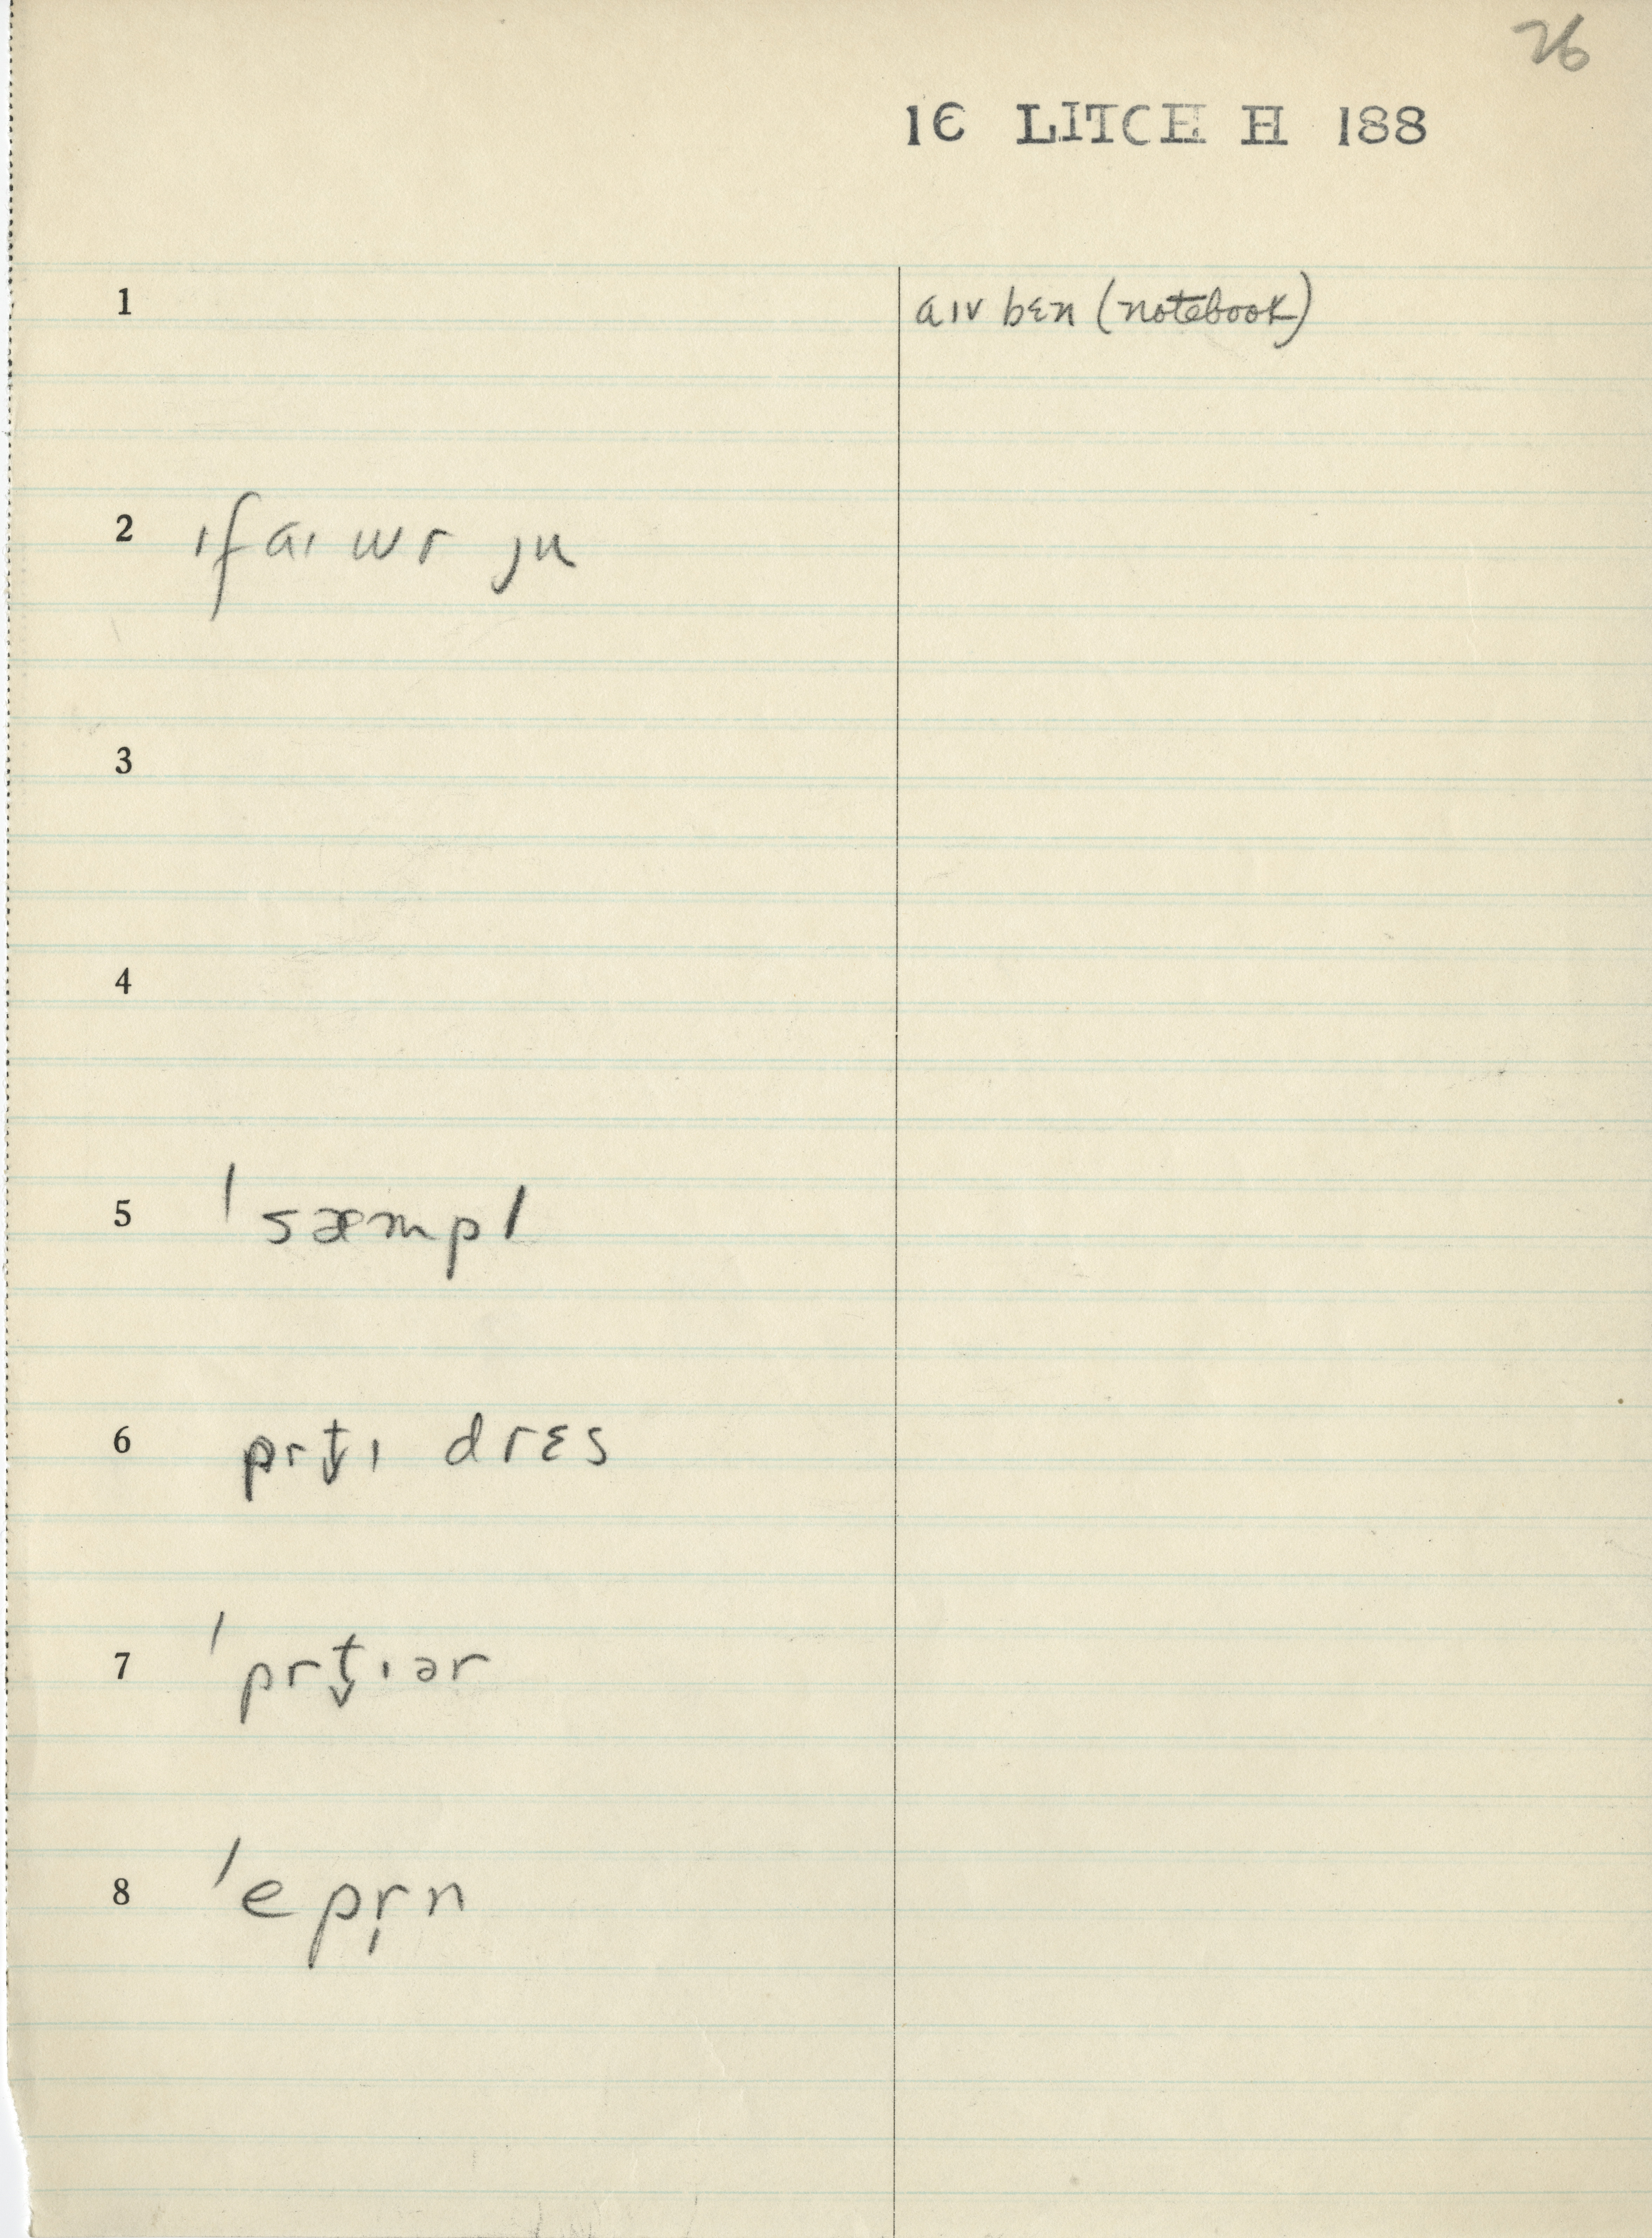 26
1C LITCH H 188
1 aɪv bɛn (notebook)
2 ɪf aɪ wr ju
3
4
5 ˈsæmpl
6 prt̬ɪ drɛs
7 ˈprt̬ɪər
8 ˈepr̩n